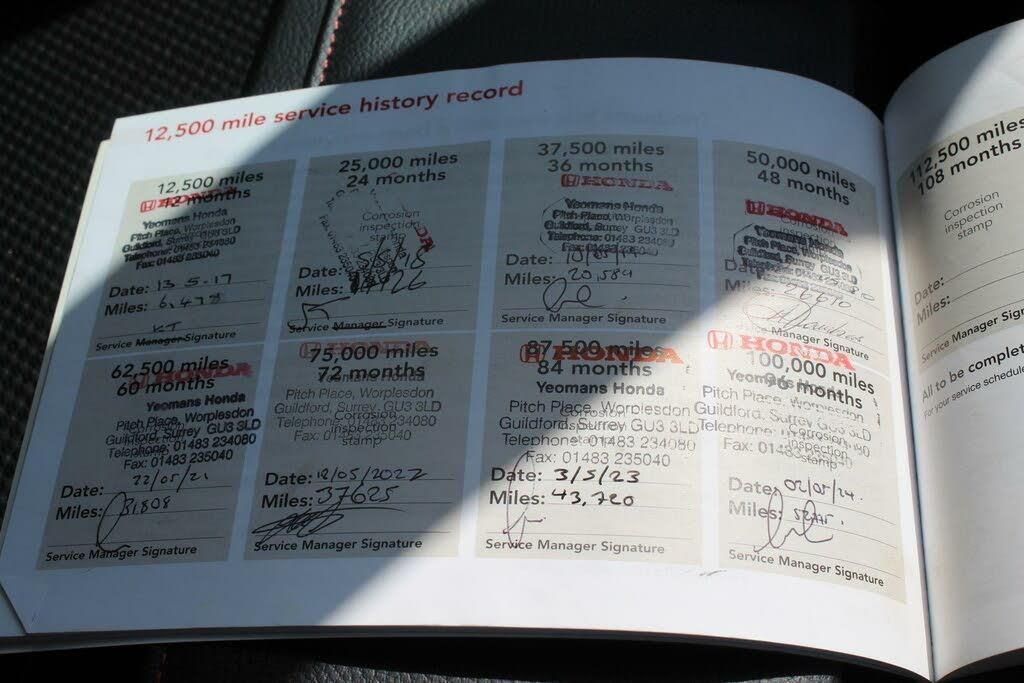 12,500 mile service history record
12,500 miles
12 months
HONDA
Yeomans Honda
Pitch Place, Worplesdon
Guildford, Surrey GU3 3LD
Telephone: 01483 234080
Fax: 01483 235040
Date: 13.5.17
Miles: 6,478
KT
Service Manager Signature
25,000 miles
24 months
Corrosion
inspection
stamp
Date:
Miles:
Service Manager Signature
37,500 miles
36 months
HONDA
Yeomans Honda
Pitch Place, Worplesdon
Guildford, Surrey GU3 3LD
Telephone: 01483 234080
Fax: 01483 235040
Date: 10/05/19
Miles: 20,589
Service Manager Signature
50,000 miles
48 months
HONDA
Yeomans Honda
Pitch Place, Worplesdon
Guildford, Surrey GU3 3LD
Date:
Miles: 26670
Service Manager Signature
62,500 miles
60 months
HONDA
Yeomans Honda
Pitch Place, Worplesdon
Guildford, Surrey GU3 3LD
Telephone: 01483 234080
Fax: 01483 235040
Date: 22/05/21
Miles: 31808
Service Manager Signature
75,000 miles
72 months
HONDA
Yeomans Honda
Pitch Place, Worplesdon
Guildford, Surrey GU3 3LD
Telephone: 01483 234080
Fax: 01483 235040
Corrosion
inspection
stamp
Date: 18/05/2022
Miles: 37625
Service Manager Signature
87,500 miles
84 months
HONDA
Yeomans Honda
Pitch Place, Worplesdon
Guildford, Surrey GU3 3LD
Telephone: 01483 234080
Fax: 01483 235040
Corrosion
inspection
stamp
Date: 3/5/23
Miles: 43,720
Service Manager Signature
100,000 miles
96 months
HONDA
Yeomans Honda
Pitch Place, Worplesdon
Guildford, Surrey GU3 3LD
Telephone: 01483 234080
Fax: 01483 235040
Corrosion
inspection
stamp
Date: 02/05/24.
Miles:
Service Manager Signature
112,500 miles
108 months
Corrosion
inspection
stamp
Date:
Miles:
Service Manager
All to be
For your service